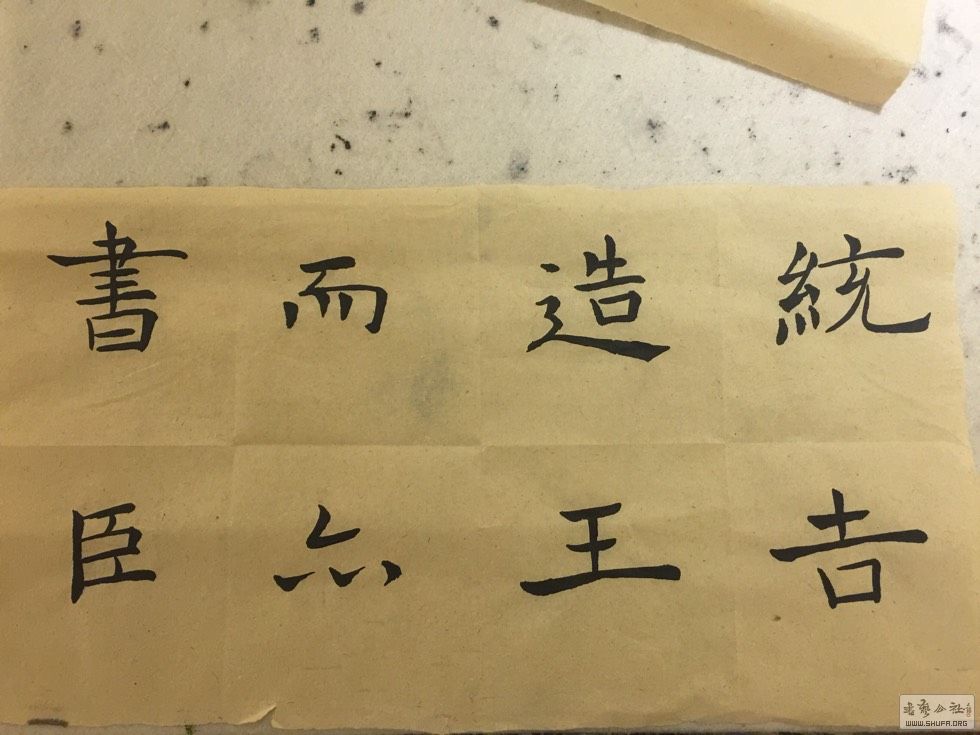 統𠮷
造王
而
書臣
书艺公社
WWW.SHUFA.ORG